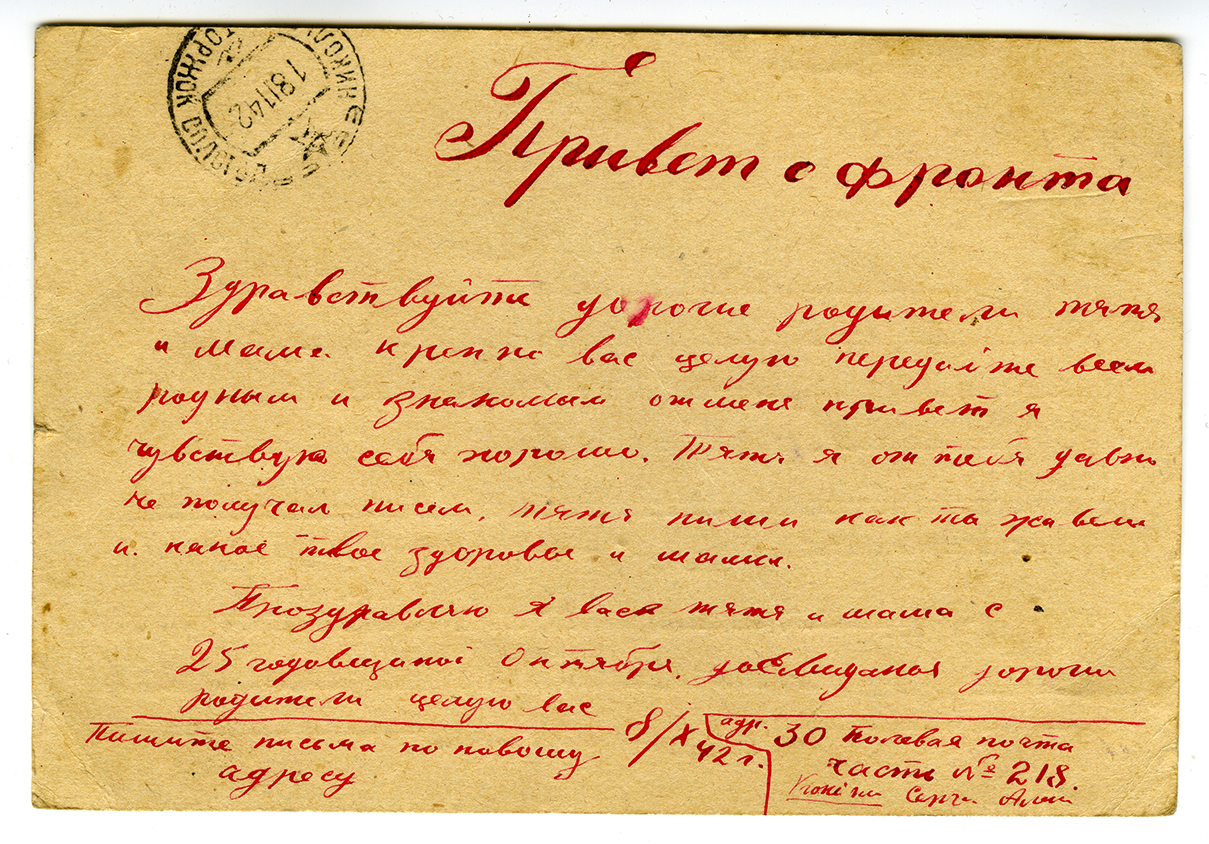 ТОРЖОК
18 11 42
Привет с фронта
Здравствуйте дорогие родители тятя
и мама крепко вас целую передайте всем
родным и знакомым от меня привет я
чувствую себя хорошо. Тятя я от тебя давно
не получал писем, тятя пиши как ты живеш
и. какое твое здоровье и мамы.
Проздравляю я вас тятя и мама с
25 годовщиной Октября, досвидания дороги
родители целую вас
Пишите письма по новому
адресу
8/X 42 г.
адр. 30 Полевая почта
часть № 218.
Серги